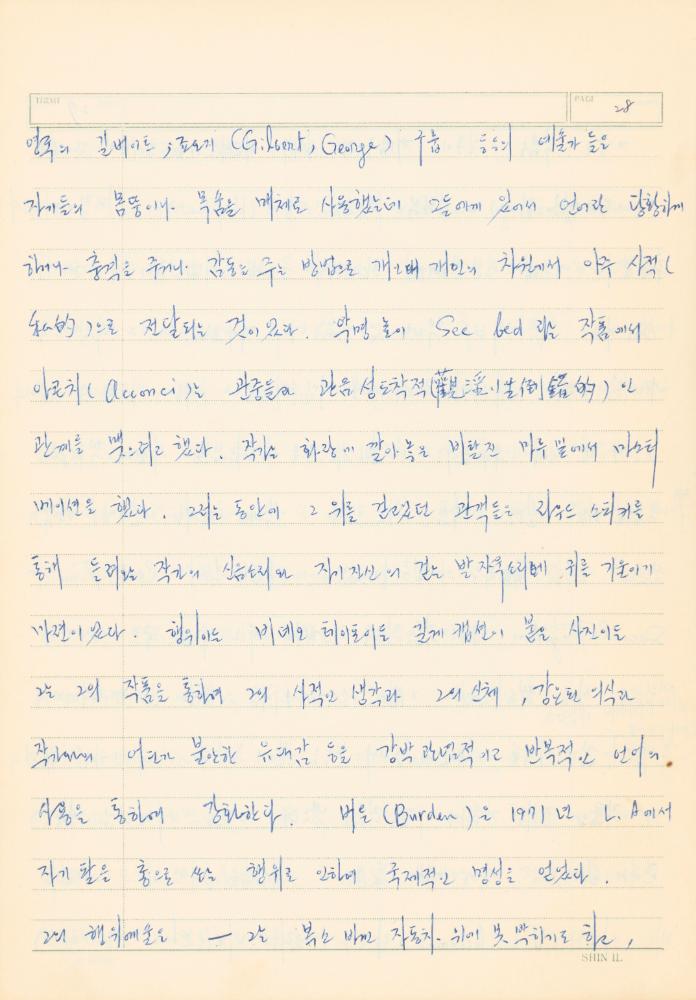 THEME
PAGE 28
영국의 길버어트, 죠오지 (Gilbert, George) 구룹 등등의 예술가 들은
자기들의 몸뚱이나 목숨을 매체로 사용했는데 그들에게 있어서 언어란 당황하게
하거나 충격을 주거나 감동을 주는 방법으로 개인의 차원에서 아주 사적(
私的)으로 전달되는 것이었다. 악명 높이 See bed 라는 작품에서
아콘치(Acconci)는 관중들과 관음성도착적(觀淫性倒錯的)인
관계를 맺으려고 했다. 작가는 화랑에 깔아놓은 비탈진 마루 밑에서 마스터
베이션을 했다. 그러는 동안에 그 위를 걸었던 관객들은 라우드 스피커를
통해 들려오는 작가의 신음소리와 자기 자신의 걷는 발자국소리에 귀를 기울이기
마련이었다. 행위이든 비데오 테이프이든 길게 캡션이 붙은 사진이든
그는 그의 작품을 통하여 그의 사적인 생각과 그의 신체, 강요된 의식과
작가와의 어딘가 불안한 유대감 등을 강박관념적이고 반복적인 언어의
사용을 통하여 강화한다. 버든(Burden)은 1971년 L.A에서
자기 팔을 총으로 쏘는 행위로 인하여 국제적인 명성을 얻었다.
그의 행위예술은 — 그는 복스 바겐 자동차 위에 못 박히기도 하고,
SHIN IL